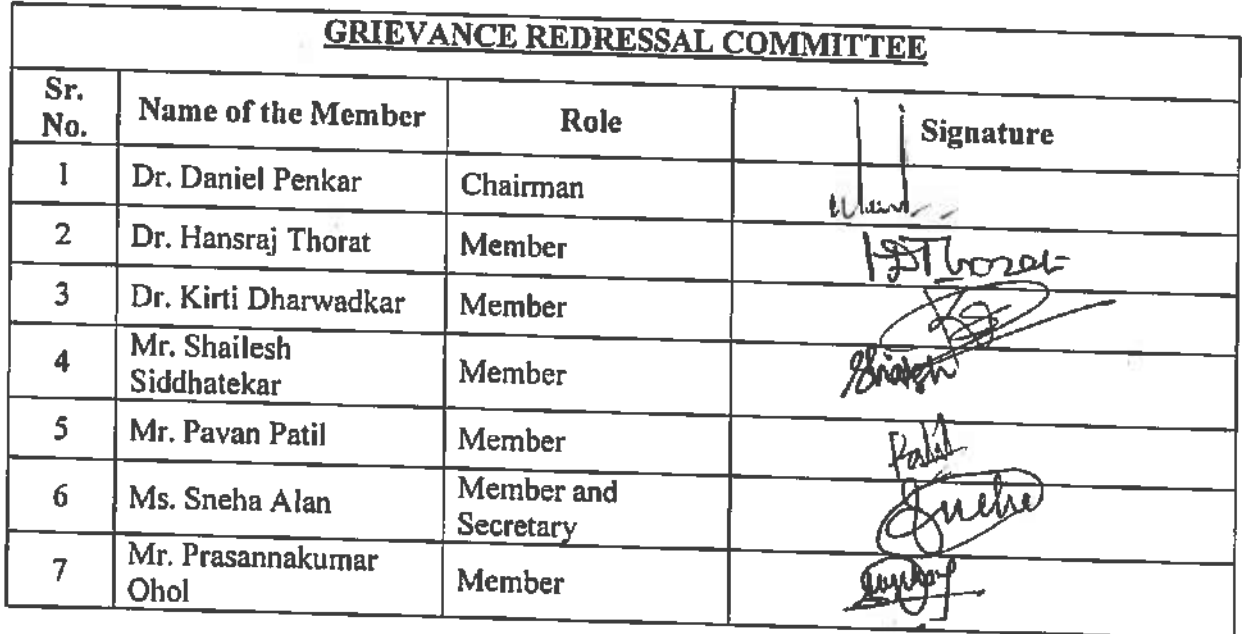 GRIEVANCE REDRESSAL COMMITTEE
Sr. No. Name of the Member Role Signature
1 Dr. Daniel Penkar Chairman
2 Dr. Hansraj Thorat Member HDThorat
3 Dr. Kirti Dharwadkar Member
4 Mr. Shailesh Siddhatekar Member
5 Mr. Pavan Patil Member Patil
6 Ms. Sneha Alan Member and Secretary Sneha
7 Mr. Prasannakumar Ohol Member